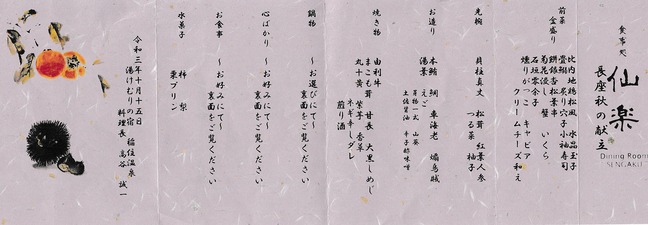 食事処 仙楽
長座秋の献立
Dining Room
SENGAKU
前菜
盆盛り
比内地鶏松風 水晶玉子
雲鯛炙り穴子小袖寿司
餅銀杏松葉串
菊花浸し蟹 いくら
石垣零余子 キャビア
燻りがっこ クリームチーズ和え
先椀
貝柱真丈 松茸 紅葉人参
つる菜 柚子
お造り
本鮪 鯛 車海老 烏賊
湯葉 えご
土佐醤油 辛子酢味噌
焼き物
由利牛
まこも茸 甘長 大黒しめじ
丸十黄 紫芋 香草
ネギキムシダレ
煎り酒
鍋物
〜お選びにて〜
裏面をご覧ください
心ばかり
〜お好みにて〜
裏面をご覧ください
お食事
〜お好みにて〜
裏面をご覧ください
水菓子
柿 梨
栗プリン
令和三年十月十五日
湯けむりの宿 稲住温泉
料理長 高谷 誠一